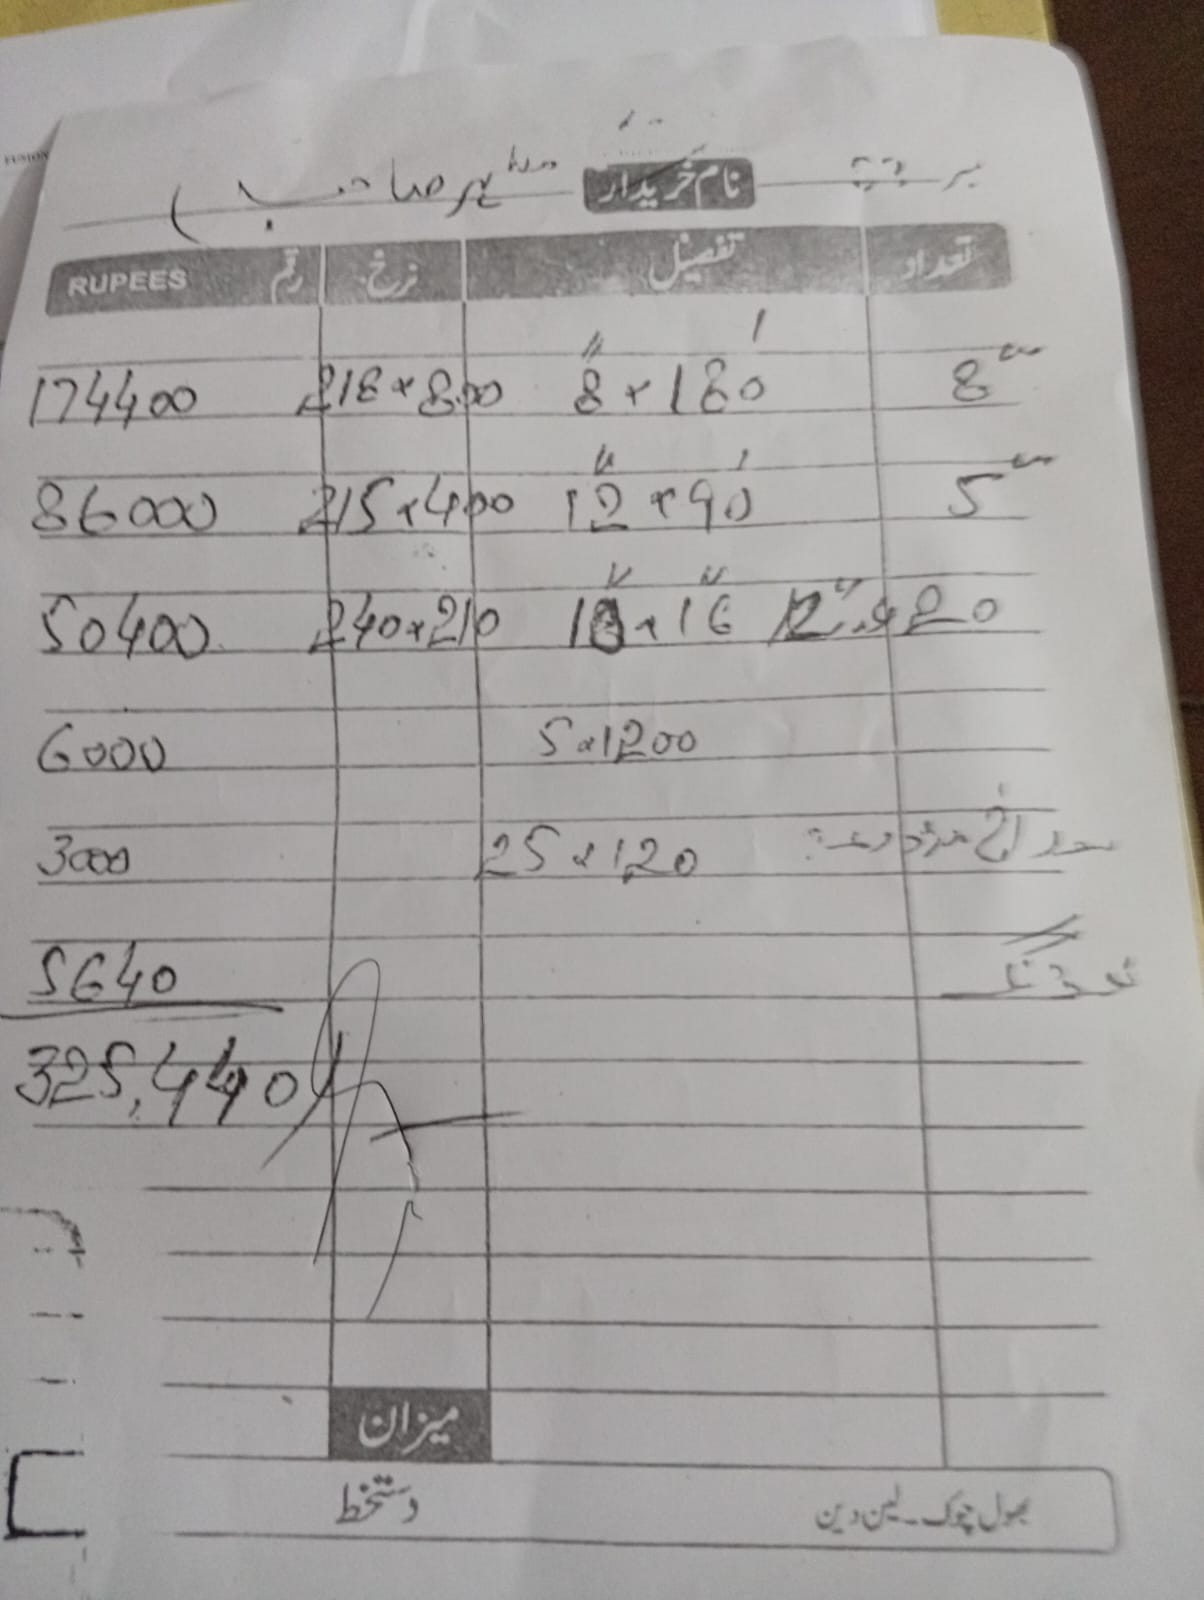 FUSION
نام خریدار صاحب
تعداد تفصیل نرخ رقم RUPEES
8" 8" x 180' 218 x 800 174400
5" 12" x 90' 215 x 400 86000
12" x 20 16" 240 x 210 50400
5 x 1200 6000
25 x 120 3000
5640
325,440
میزان
دستخط
بھول چوک۔لین دین